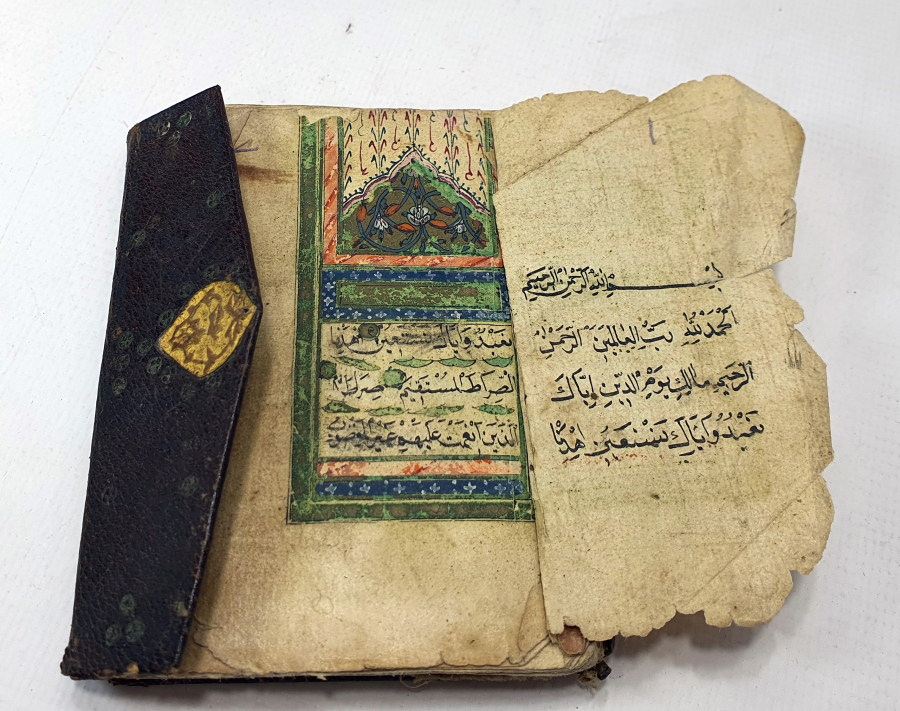 بسم الله الرحمن الرحيم
الحمد لله رب العالمين الرحمن
الرحيم مالك يوم الدين اياك
نعبد واياك نستعين اهدنا
نعبد واياك نستعين اهدنا
الصراط المستقيم صراط
الذين انعمت عليهم غير المغضوب